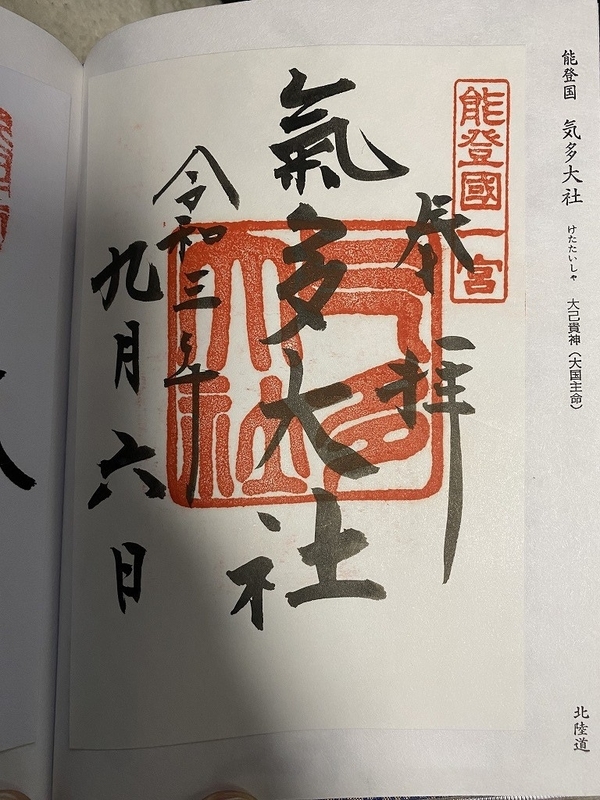 能登国 気多大社 けたたいしゃ 大己貴神（大国主命）
北陸道
能登國一宮
奉拝
氣多大社
氣多大社
令和三年
九月六日